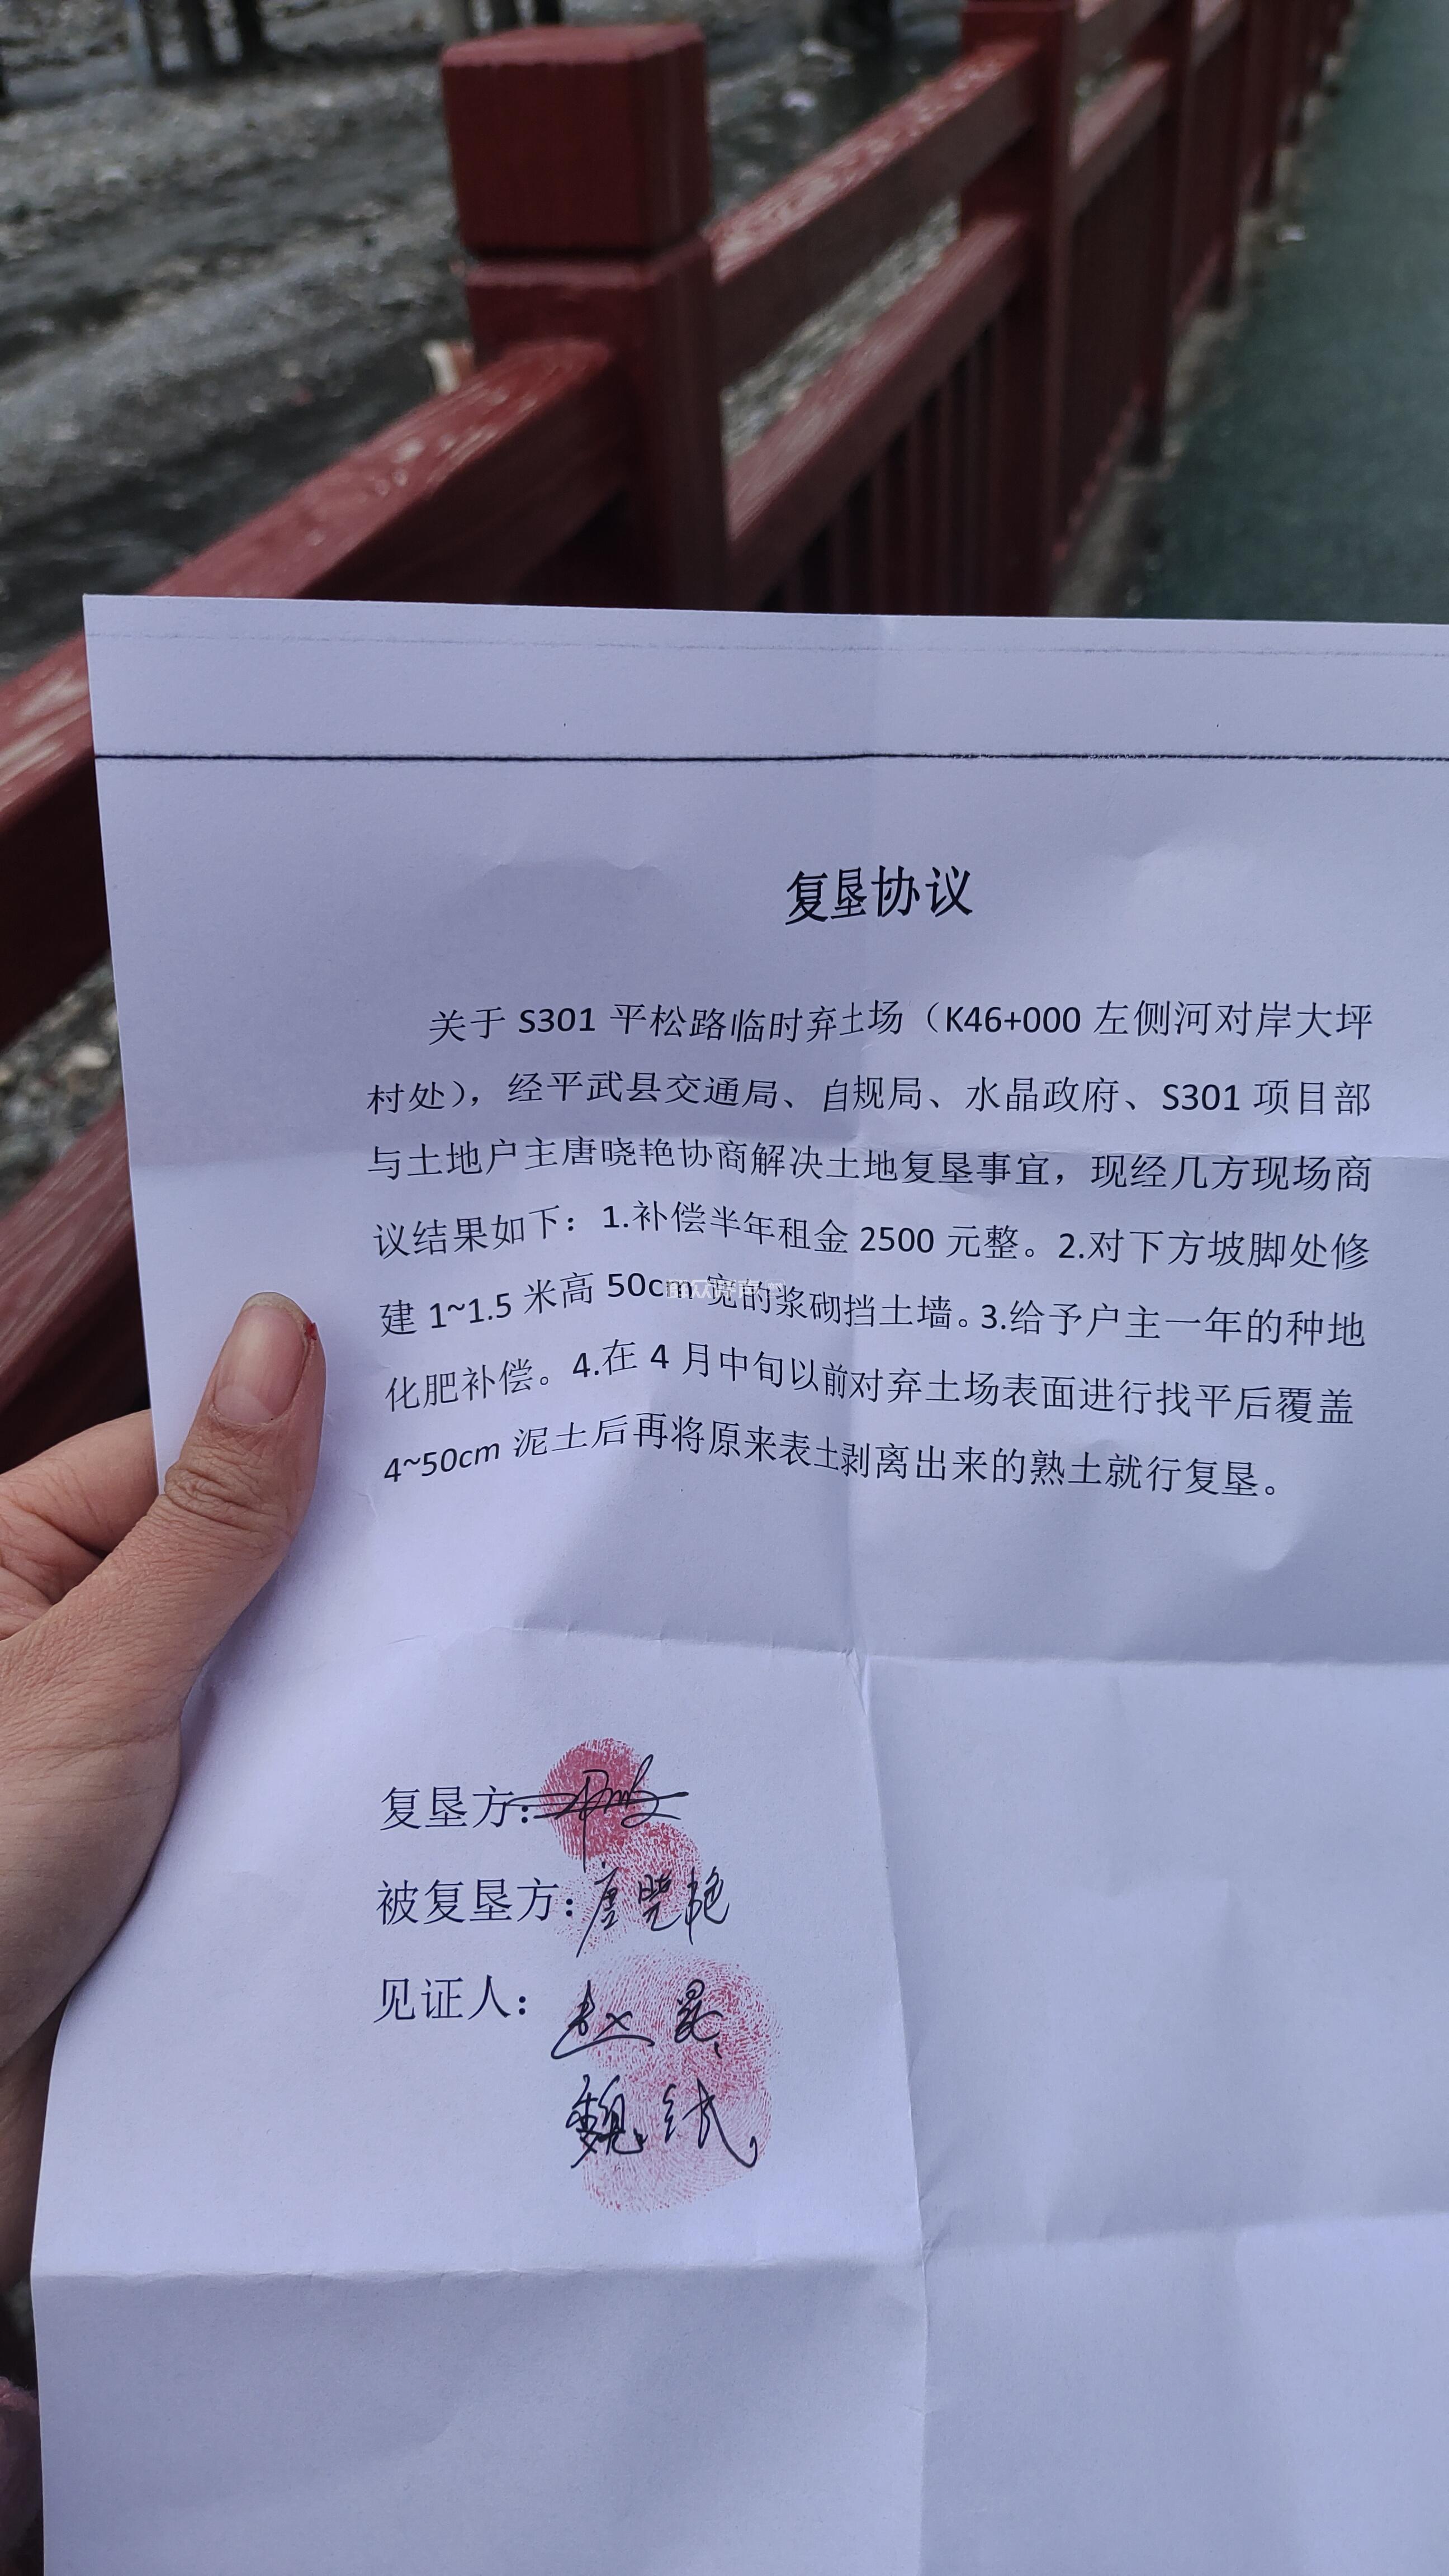 复垦协议
关于 S301 平松路临时弃土场（K46+000 左侧河对岸大坪
村处），经平武县交通局、自规局、水晶政府、S301 项目部
与土地户主唐晓艳协商解决土地复垦事宜，现经几方现场商
议结果如下：1.补偿半年租金 2500 元整。2.对下方坡脚处修
建 1~1.5 米高 50cm 宽的浆砌挡土墙。3.给予户主一年的种地
化肥补偿。4.在 4 月中旬以前对弃土场表面进行找平后覆盖
4~50cm 泥土后再将原来表土剥离出来的熟土就行复垦。
复垦方：
被复垦方：唐晓艳
见证人：赵
魏